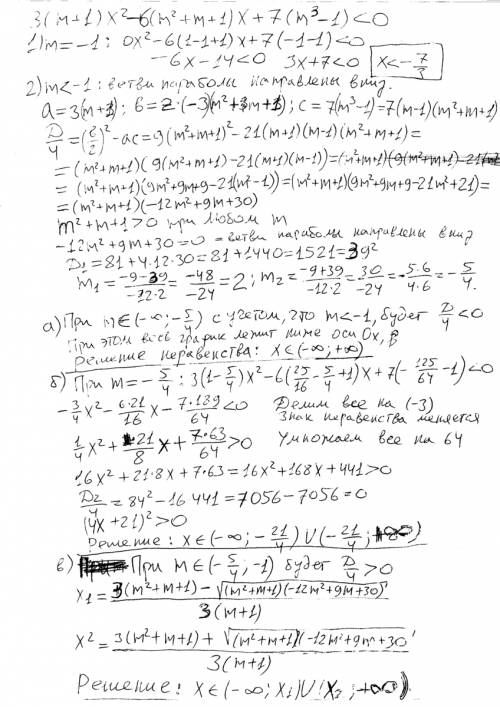 3(m+1)x²-6(m²+m+1)x+7(m³-1)<0
1) m=-1: 0x²-6(1-1+1)x+7(-1-1)<0
-6x-14<0 3x+7<0 x<-7/3
2) m<-1: ветви параболы направлены вниз.
a=3(m+1); b=2·(-3)(m²+m+1); c=7(m³-1)=7(m-1)(m²+m+1)
D/4=(b/2)²-ac=9(m²+m+1)²-21(m+1)(m-1)(m²+m+1)=
=(m²+m+1)(9(m²+m+1)-21(m+1)(m-1))=
=(m²+m+1)(9m²+9m+9-21(m²-1))=(m²+m+1)(9m²+9m+9-21m²+21)=
=(m²+m+1)(-12m²+9m+30)
m²+m+1>0 при любом m
-12m²+9m+30=0 - ветви параболы направлены вниз
D₁=81+4·12·30=81+1440=1521=39²
m₁=(-9-39)/(-12·2)=-48/-24=2; m₂=(-9+39)/(-12·2)=30/-24=-5·6/4·6=-5/4.
а) При m∈(-∞;-5/4) с учетом, что m<-1, будет D/4<0
При этом весь график лежит ниже оси Ox,
Решение неравенства: x∈(-∞;+∞)
б) При m=-5/4: 3(1-5/4)x²-6(25/16-5/4+1)x+7(-125/64-1)<0
-3/4x²-6·21/16x-7·189/64<0 Делим все на (-3)
Знак неравенства меняется
1/4x²+21/8x+7·63/64>0 Умножаем все на 64
16x²+21·8x+7·63=16x²+168x+441>0
D₂/4=84²-16·441=7056-7056=0
(4x+21)²>0
Решение: x∈(-∞;-21/4)U(-21/4;+∞)
в) При m∈(-5/4;-1) будет D/4>0
x₁=(3(m²+m+1)-√((m²+m+1)(-12m²+9m+30)))/(3(m+1))
x²=(3(m²+m+1)+√((m²+m+1)(-12m²+9m+30)))/(3(m+1))
Решение: x∈(-∞;x₁)U(x₂;+∞)